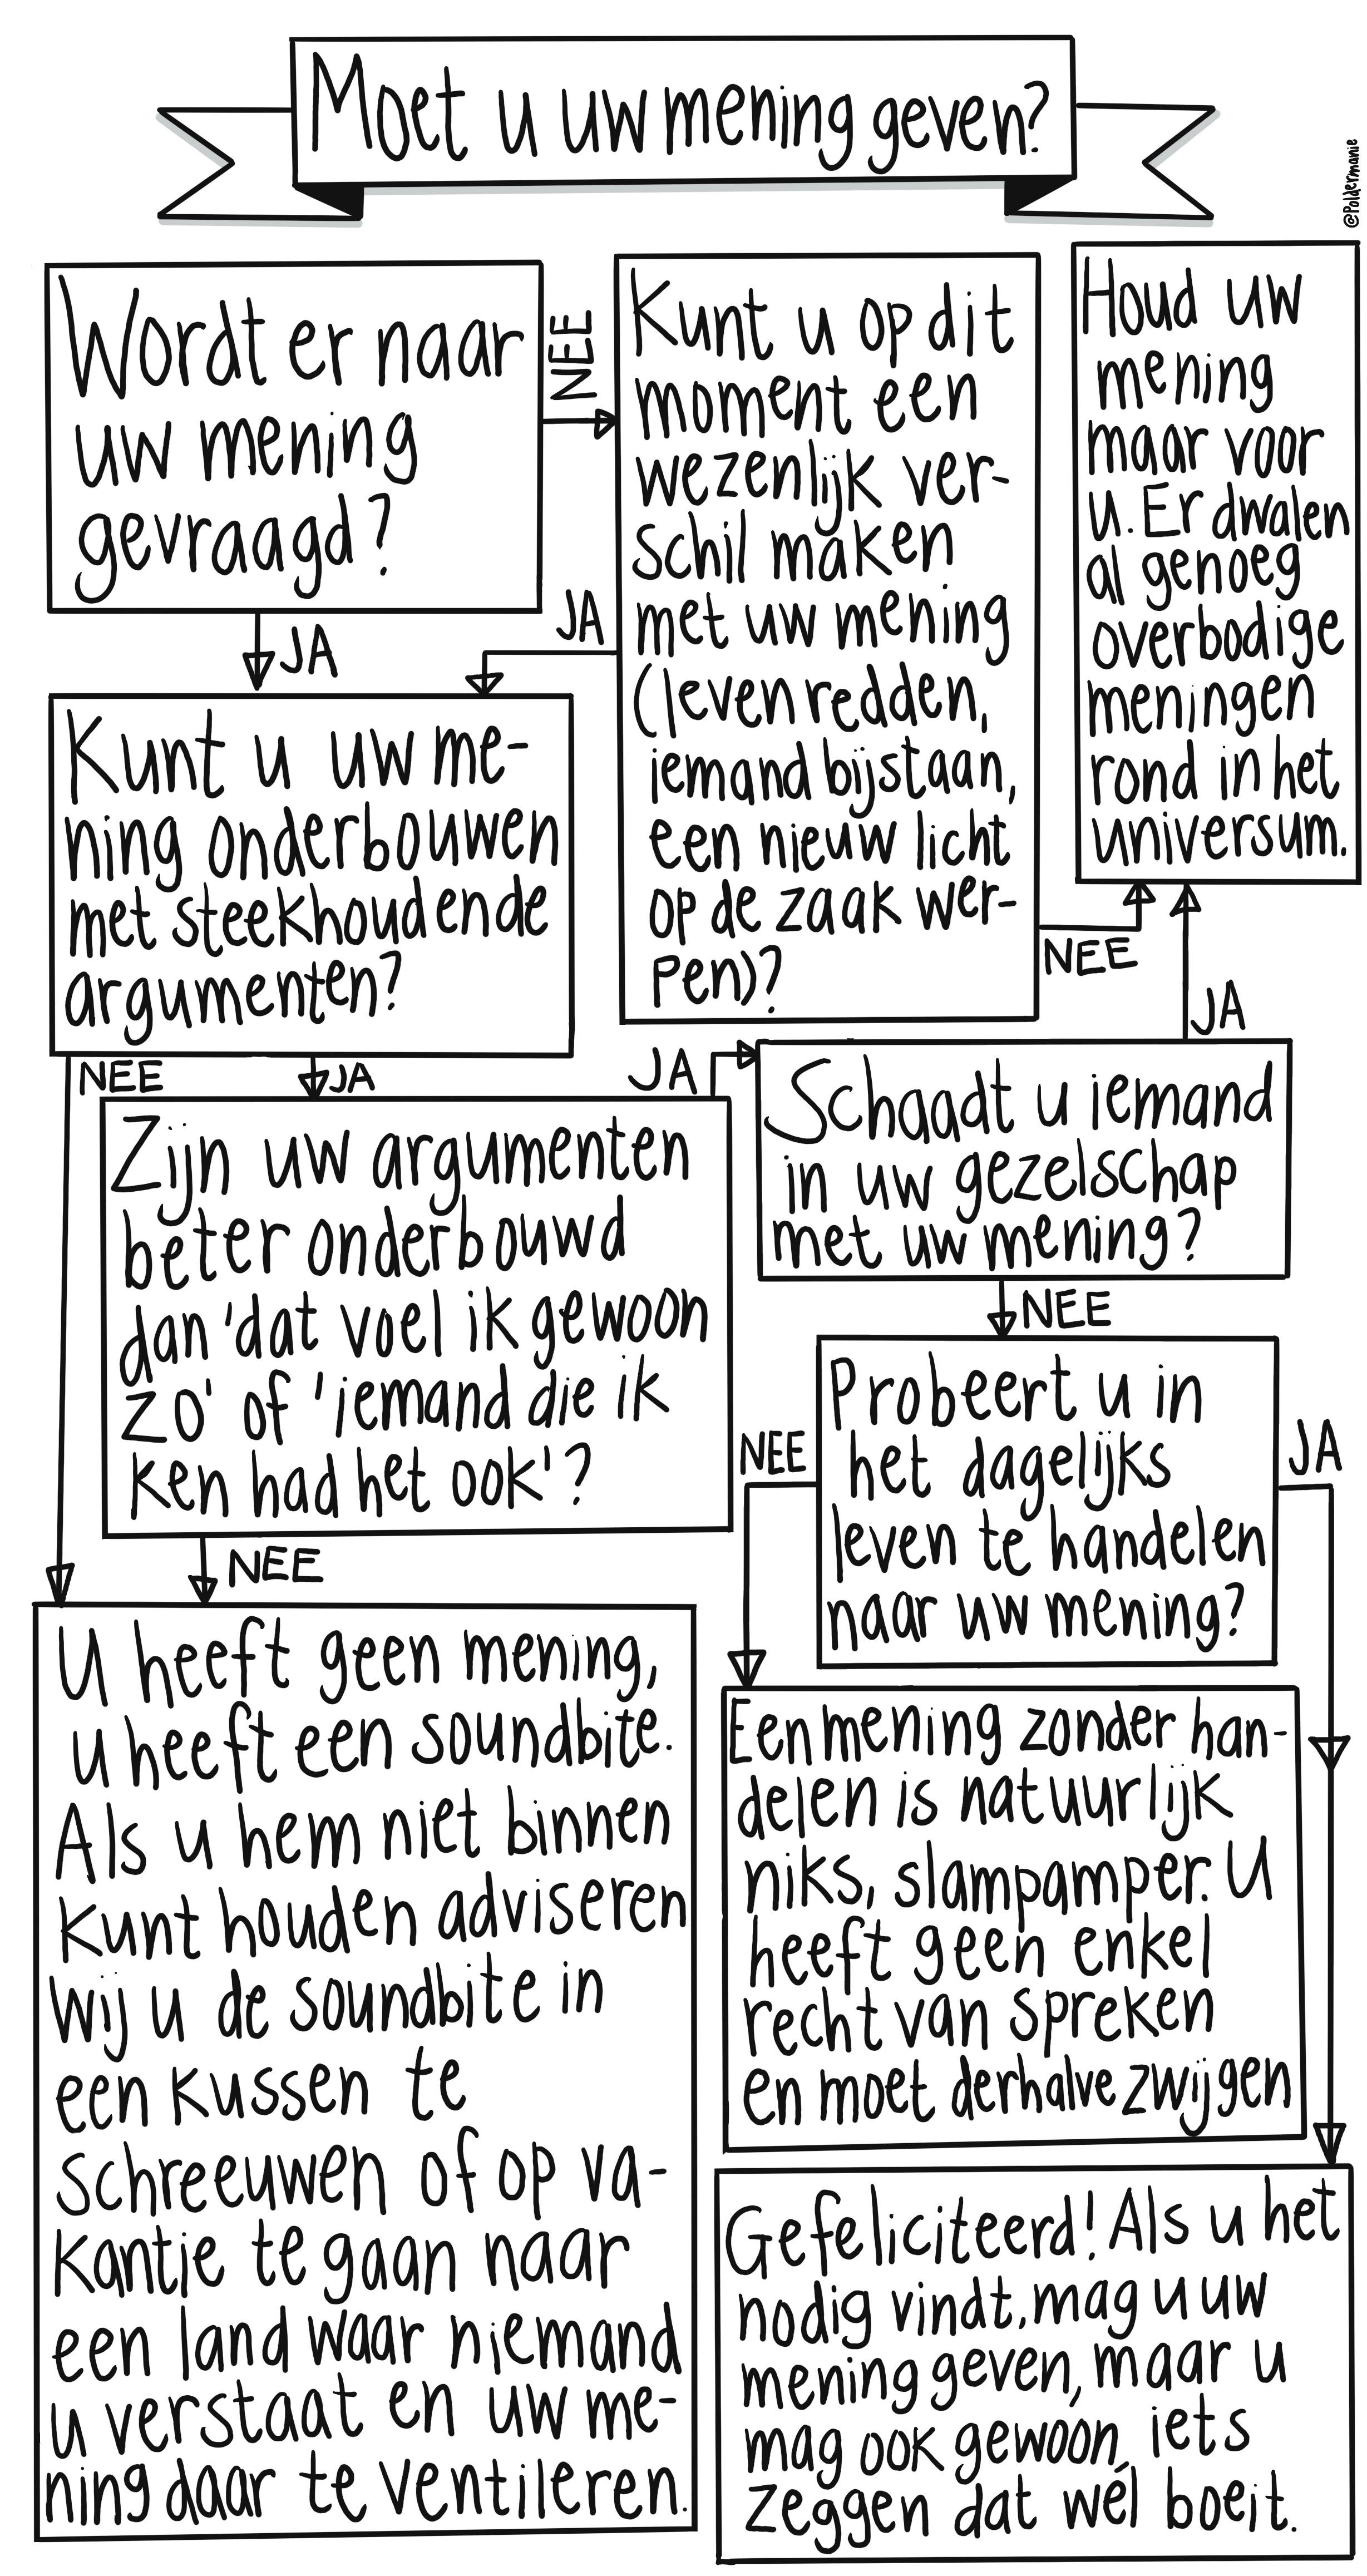 Moet u uw mening geven?
@Poldermanie
Wordt er naar
uw mening
gevraagd?
NEE
JA
Kunt u op dit
moment een
wezenlijk ver-
schil maken
met uw mening
(leven redden,
iemand bijstaan,
een nieuw licht
op de zaak wer-
pen)?
JA
NEE
Houd uw
mening
maar voor
u. Er dwalen
al genoeg
overbodige
meningen
rond in het
universum.
Kunt u uw me-
ning onderbouwen
met steekhoudende
argumenten?
NEE
JA
Zijn uw argumenten
beter onderbouwd
dan 'dat voel ik gewoon
zo' of 'iemand die ik
ken had het ook'?
JA
NEE
Schaadt u iemand
in uw gezelschap
met uw mening?
JA
NEE
Probeert u in
het dagelijks
leven te handelen
naar uw mening?
NEE
JA
U heeft geen mening,
u heeft een soundbite.
Als u hem niet binnen
kunt houden adviseren
wij u de soundbite in
een kussen te
schreeuwen of op va-
kantie te gaan naar
een land waar niemand
u verstaat en uw me-
ning daar te ventileren.
Een mening zonder han-
delen is natuurlijk
niks, slampamper. U
heeft geen enkel
recht van spreken
en moet derhalve zwijgen
Gefeliciteerd! Als u het
nodig vindt, mag u uw
mening geven, maar u
mag ook gewoon iets
zeggen dat wél boeit.